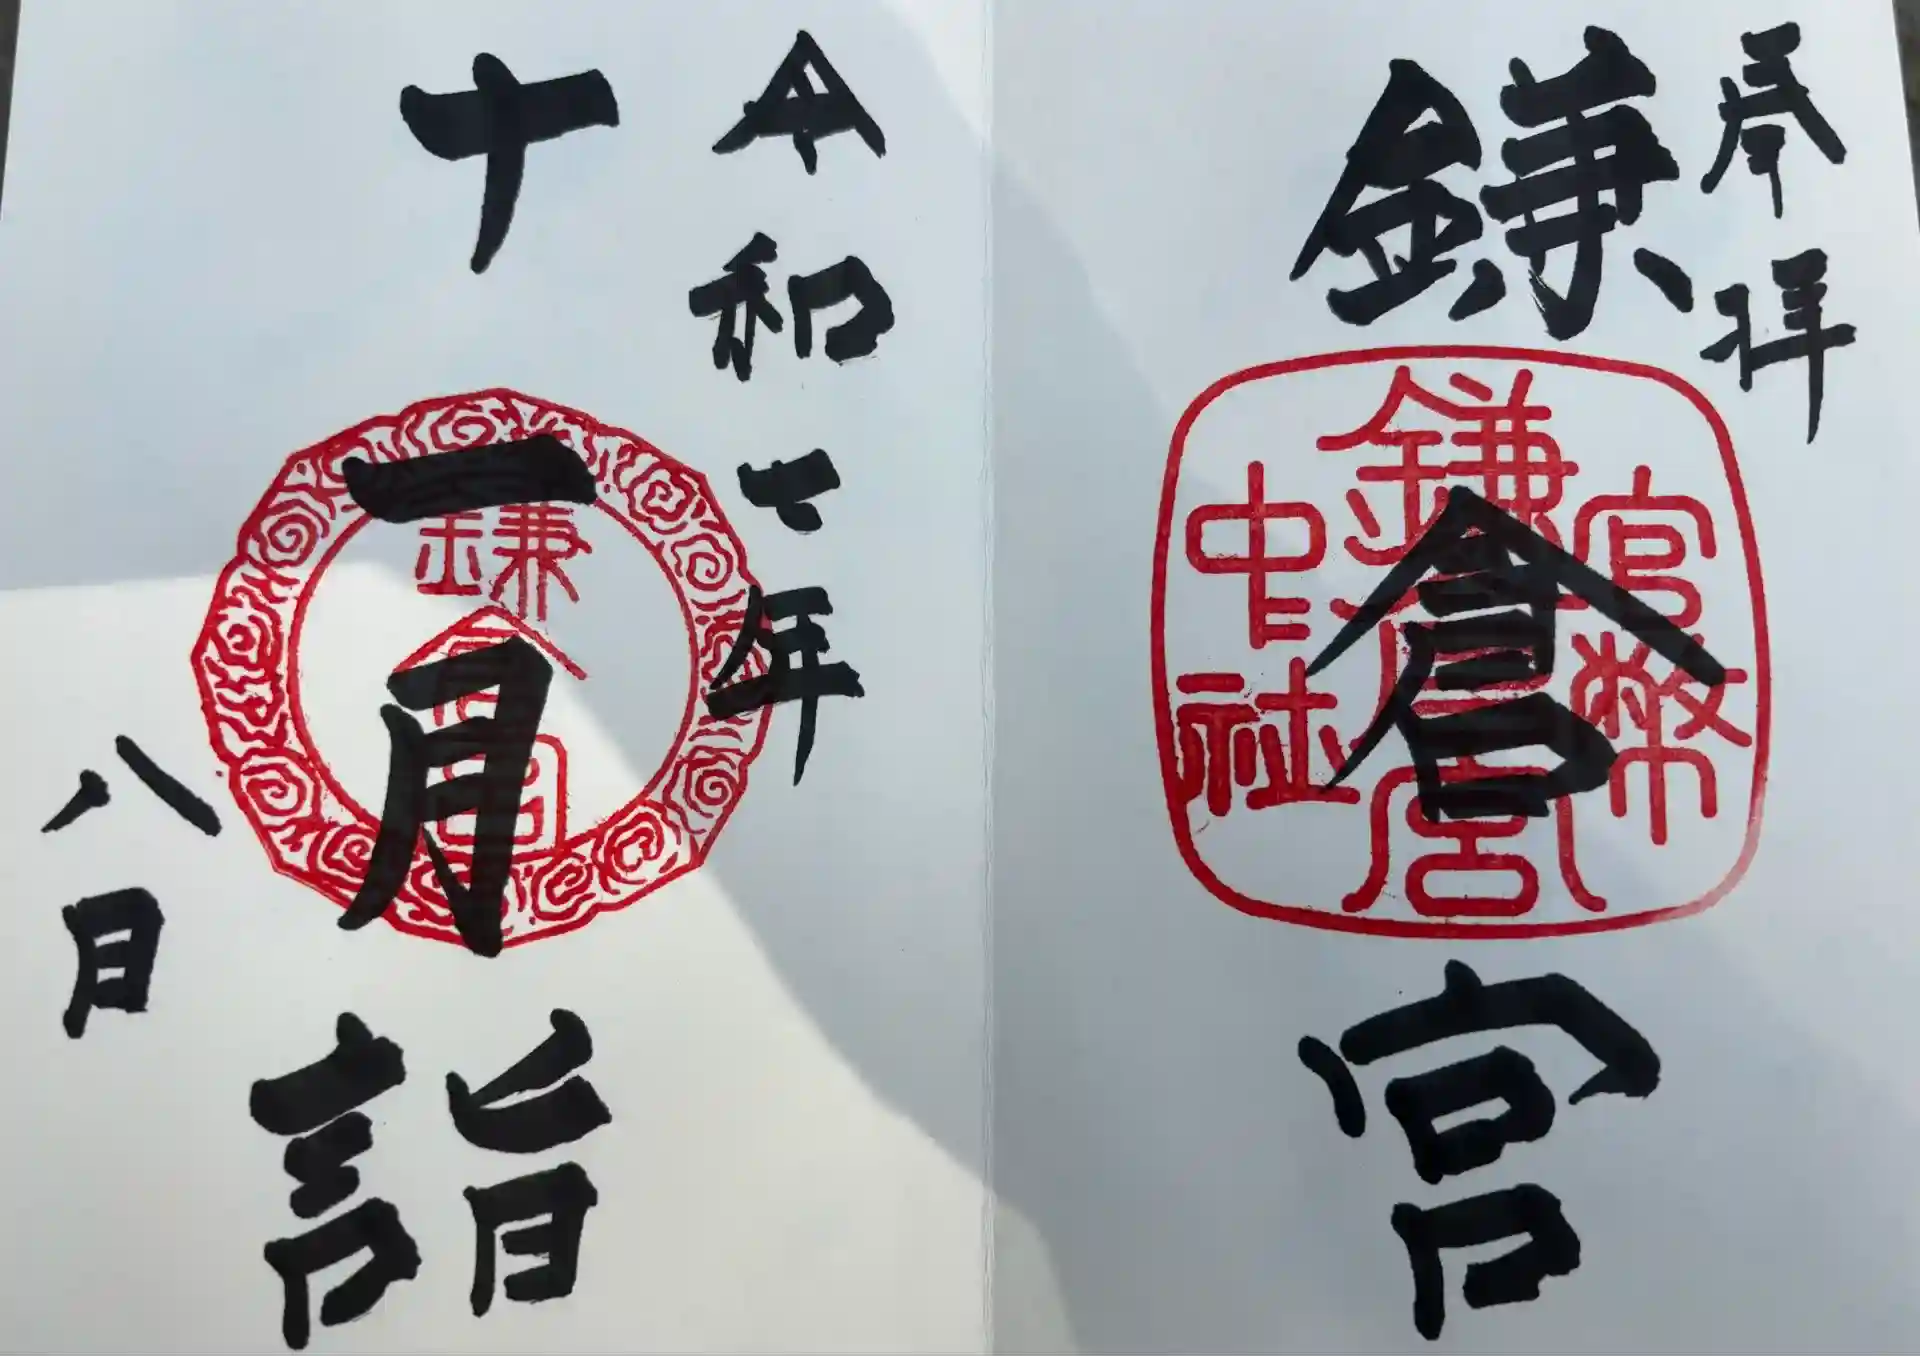 奉拝
鎌倉宮
官幣
鎌倉宮
中社
令和七年
十一月詣
鎌倉宮
八日